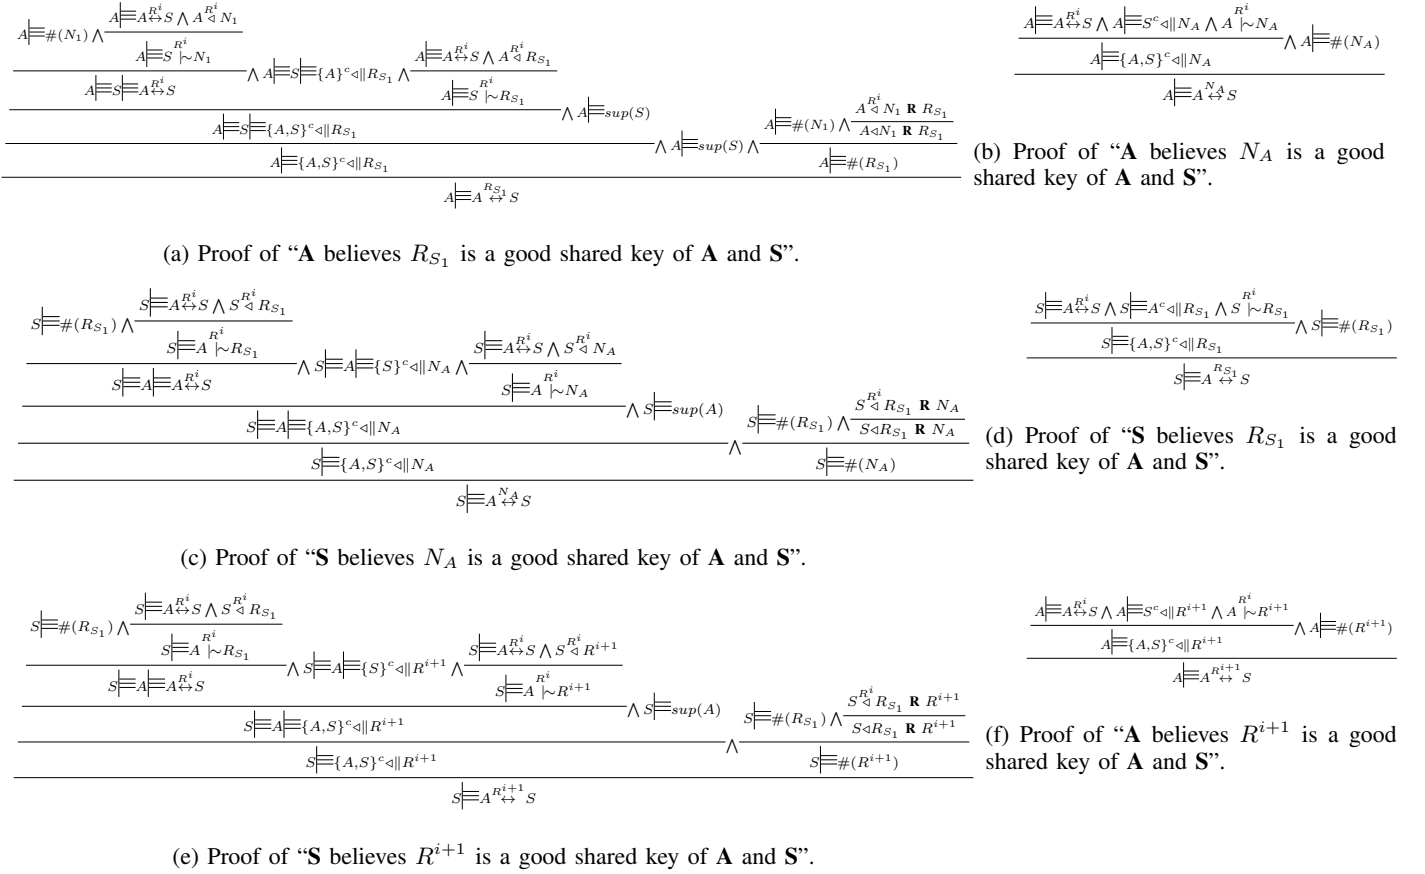 A|≡#(N₁) ⋀ A|≡A↔^{R^i}S ⋀ A ◁^{R^i} N₁
A|≡S |~^{R^i} N₁
A|≡S|≡A↔^{R^i}S ⋀ A|≡S|≡{A}ᶜ◁∥R_{S₁} ⋀ A|≡A↔^{R^i}S ⋀ A ◁^{R^i} R_{S₁}
A|≡S |~^{R^i} R_{S₁}
A|≡S|≡{A,S}ᶜ◁∥R_{S₁} ⋀ A|≡sup(S)
A|≡{A,S}ᶜ◁∥R_{S₁} ⋀ A|≡sup(S) ⋀ A|≡#(N₁) ⋀ A ◁^{R^i} N₁ R R_{S₁}
A◁N₁ R R_{S₁}
A|≡#(R_{S₁})
A|≡A↔^{R_{S₁}}S
(a) Proof of “A believes R_{S₁} is a good shared key of A and S”.
A|≡A↔^{R^i}S ⋀ A|≡Sᶜ◁∥N_A ⋀ A |~^{R^i} N_A
A|≡{A,S}ᶜ◁∥N_A ⋀ A|≡#(N_A)
A|≡A↔^{N_A}S
(b) Proof of “A believes N_A is a good
shared key of A and S”.
S|≡#(R_{S₁}) ⋀ S|≡A↔^{R^i}S ⋀ S ◁^{R^i} R_{S₁}
S|≡A |~^{R^i} R_{S₁}
S|≡A|≡A↔^{R^i}S ⋀ S|≡A|≡{S}ᶜ◁∥N_A ⋀ S|≡A↔^{R^i}S ⋀ S ◁^{R^i} N_A
S|≡A |~^{R^i} N_A
S|≡A|≡{A,S}ᶜ◁∥N_A ⋀ S|≡sup(A)
S|≡{A,S}ᶜ◁∥N_A ⋀ S|≡#(R_{S₁}) ⋀ S ◁^{R^i} R_{S₁} R N_A
S◁R_{S₁} R N_A
S|≡#(N_A)
S|≡A↔^{N_A}S
(c) Proof of “S believes N_A is a good shared key of A and S”.
S|≡A↔^{R^i}S ⋀ S|≡Aᶜ◁∥R_{S₁} ⋀ S |~^{R^i} R_{S₁}
S|≡{A,S}ᶜ◁∥R_{S₁} ⋀ S|≡#(R_{S₁})
S|≡A↔^{R_{S₁}}S
(d) Proof of “S believes R_{S₁} is a good
shared key of A and S”.
S|≡#(R_{S₁}) ⋀ S|≡A↔^{R^i}S ⋀ S ◁^{R^i} R_{S₁}
S|≡A |~^{R^i} R_{S₁}
S|≡A|≡A↔^{R^i}S ⋀ S|≡A|≡{S}ᶜ◁∥R^{i+1} ⋀ S|≡A↔^{R^i}S ⋀ S ◁^{R^i} R^{i+1}
S|≡A |~^{R^i} R^{i+1}
S|≡A|≡{A,S}ᶜ◁∥R^{i+1} ⋀ S|≡sup(A)
S|≡{A,S}ᶜ◁∥R^{i+1} ⋀ S|≡#(R_{S₁}) ⋀ S ◁^{R^i} R_{S₁} R R^{i+1}
S◁R_{S₁} R R^{i+1}
S|≡#(R^{i+1})
S|≡A↔^{R^{i+1}}S
(e) Proof of “S believes R^{i+1} is a good shared key of A and S”.
A|≡A↔^{R^i}S ⋀ A|≡Sᶜ◁∥R^{i+1} ⋀ A |~^{R^i} R^{i+1}
A|≡{A,S}ᶜ◁∥R^{i+1} ⋀ A|≡#(R^{i+1})
A|≡A↔^{R^{i+1}}S
(f) Proof of “A believes R^{i+1} is a good
shared key of A and S”.